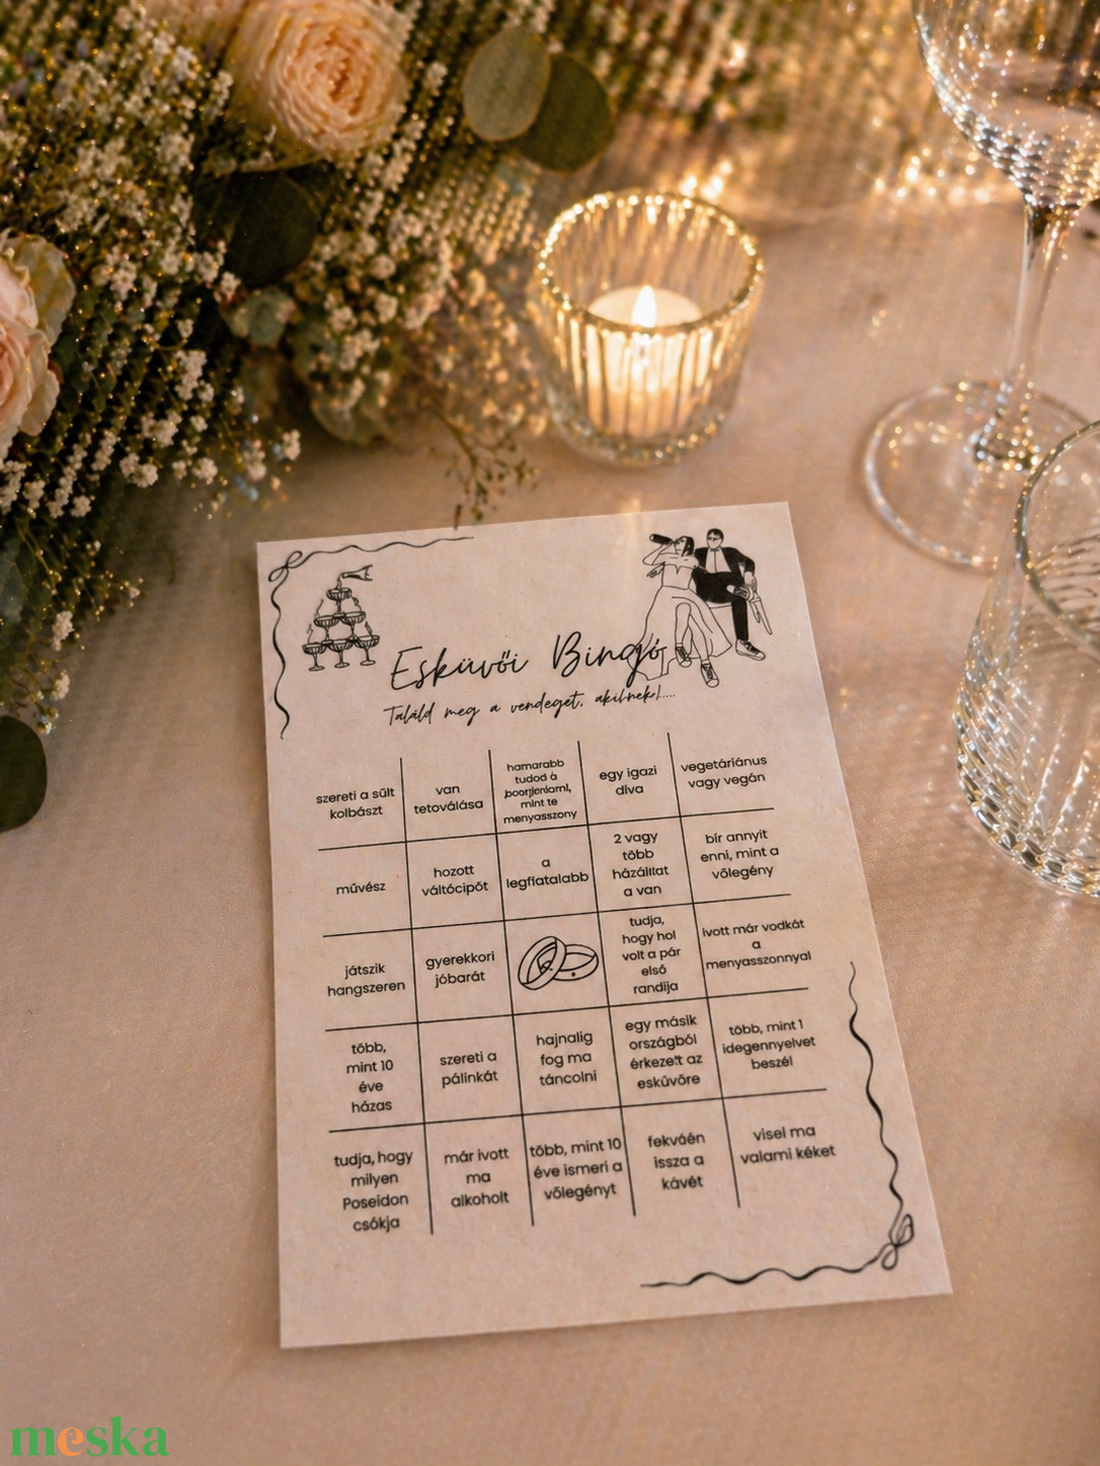 Esküvői Bingó
Találd meg a vendeget, akilnek!....
szereti a sült
kolbászt
van
tetoválása
hamarabb
tudod a
mint te
menyasszony
egy igazi
díva
vegetáriánus
vagy vegán
művész
hozott
váltócipőt
a
legfiatalabb
2 vagy
több
házállítat
a van
bír annyit
enni, mint a
vőlegény
játszik
hangszeren
gyerekkori
jóbarát
tudja,
hogy hol
volt a pár
első
randija
ivott már vodkát
a
menyasszonnyal
több,
mint 10
éve
házas
szereti a
pálinkát
hajnalig
fog ma
táncolni
egy másik
országból
érkezett az
esküvőre
több, mint 1
idegennyelvet
beszél
tudja, hogy
milyen
Poseidon
csókja
már ivott
ma
alkoholt
több, mint 10
éve ismeri a
vőlegényt
fekváén
issza a
kávét
visel ma
valami kéket
meska